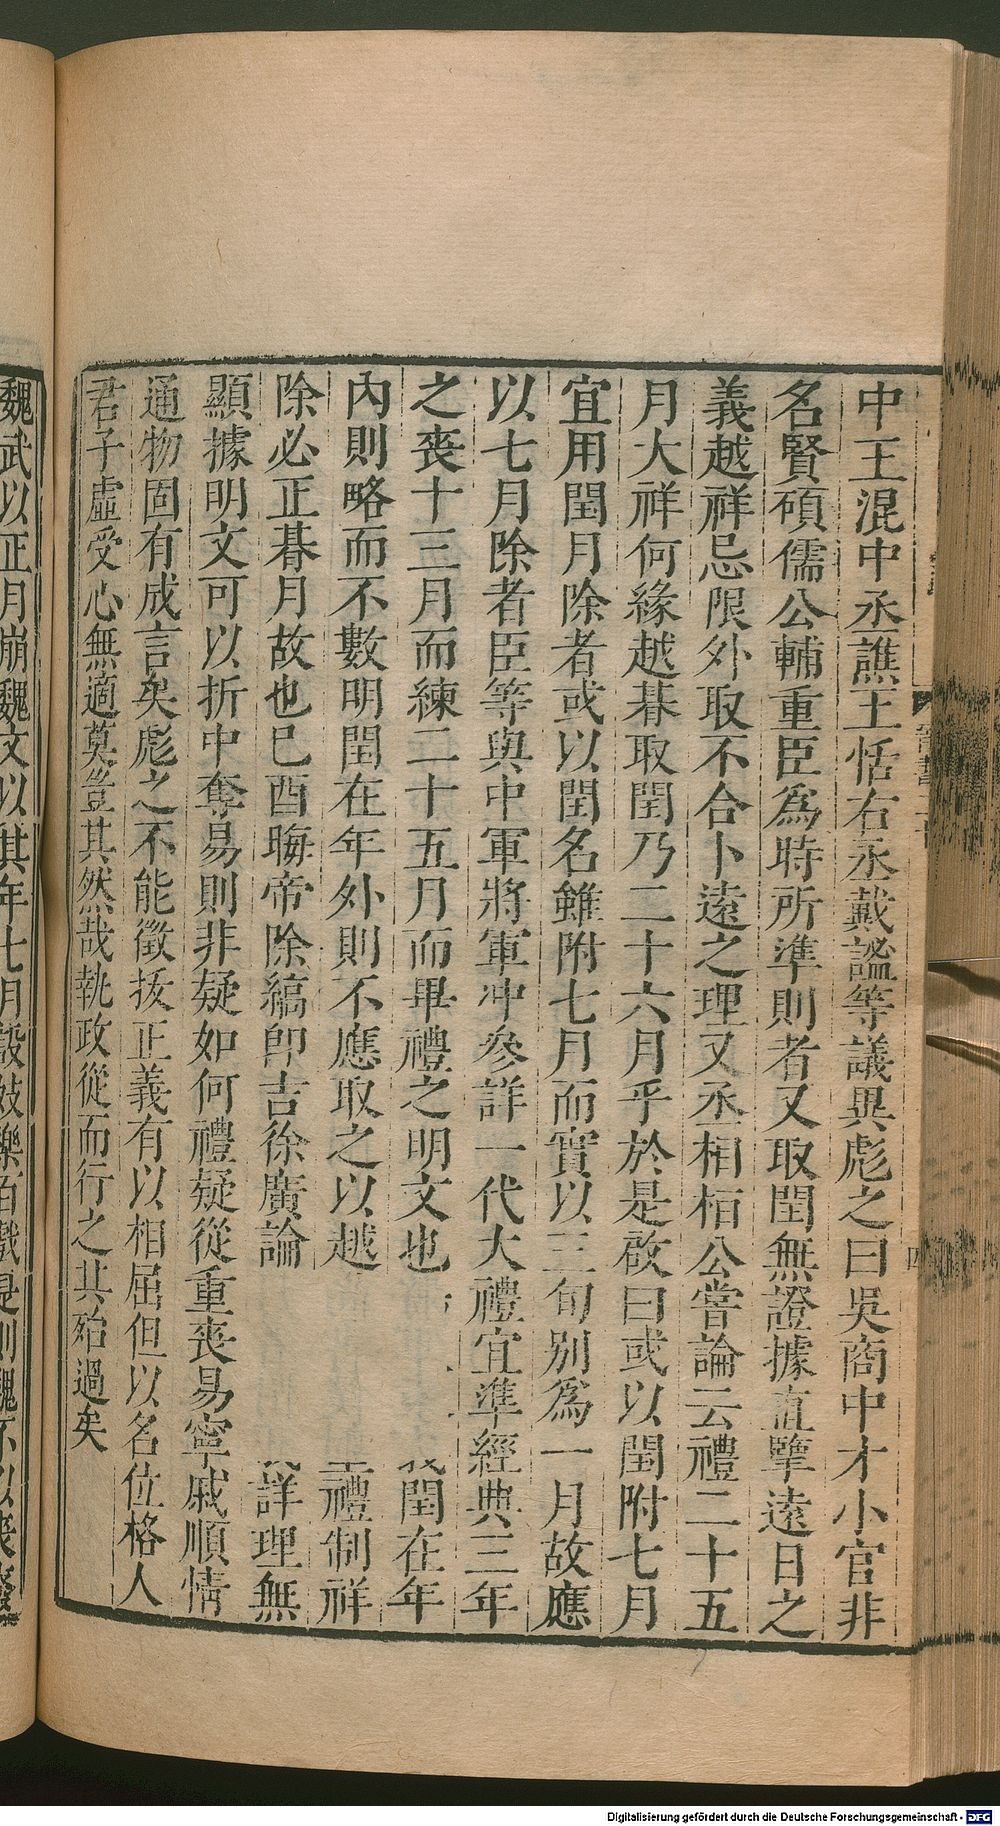 中王混中丞譙王恬右丞戴謐等議異彪之曰吳商中才小官非
名賢碩儒公輔重臣爲時所準則者又取閏無證據直擥遠日之
義越祥忌限外取不合卜遠之理又丞相桓公嘗論云禮二十五
月大祥何緣越朞取閏乃二十六月乎於是啟曰或以閏附七月
宜用閏月除者或以閏名雖附七月而實以三旬別爲一月故應
以七月除者臣等與中軍將軍冲參詳一代大禮宜準經典三年
之喪十三月而練二十五月而畢禮之明文也 閏在年
內則略而不數明閏在年外則不應取之以越 禮制祥
除必正朞月故也己酉晦帝除縞即吉徐廣論 詳理無
顯據明文可以折中奪易則非疑如何禮疑從重喪易寧戚順情
通物固有成言矣彪之不能徵拔正義有以相屈但以名位格人
君子虛受心無適莫豈其然哉執政從而行之其殆過矣
魏武以正月崩魏文以其年七月設妓樂百戲是則魏不以喪廢
Digitalisierung gefördert durch die Deutsche Forschungsgemeinschaft - DFG